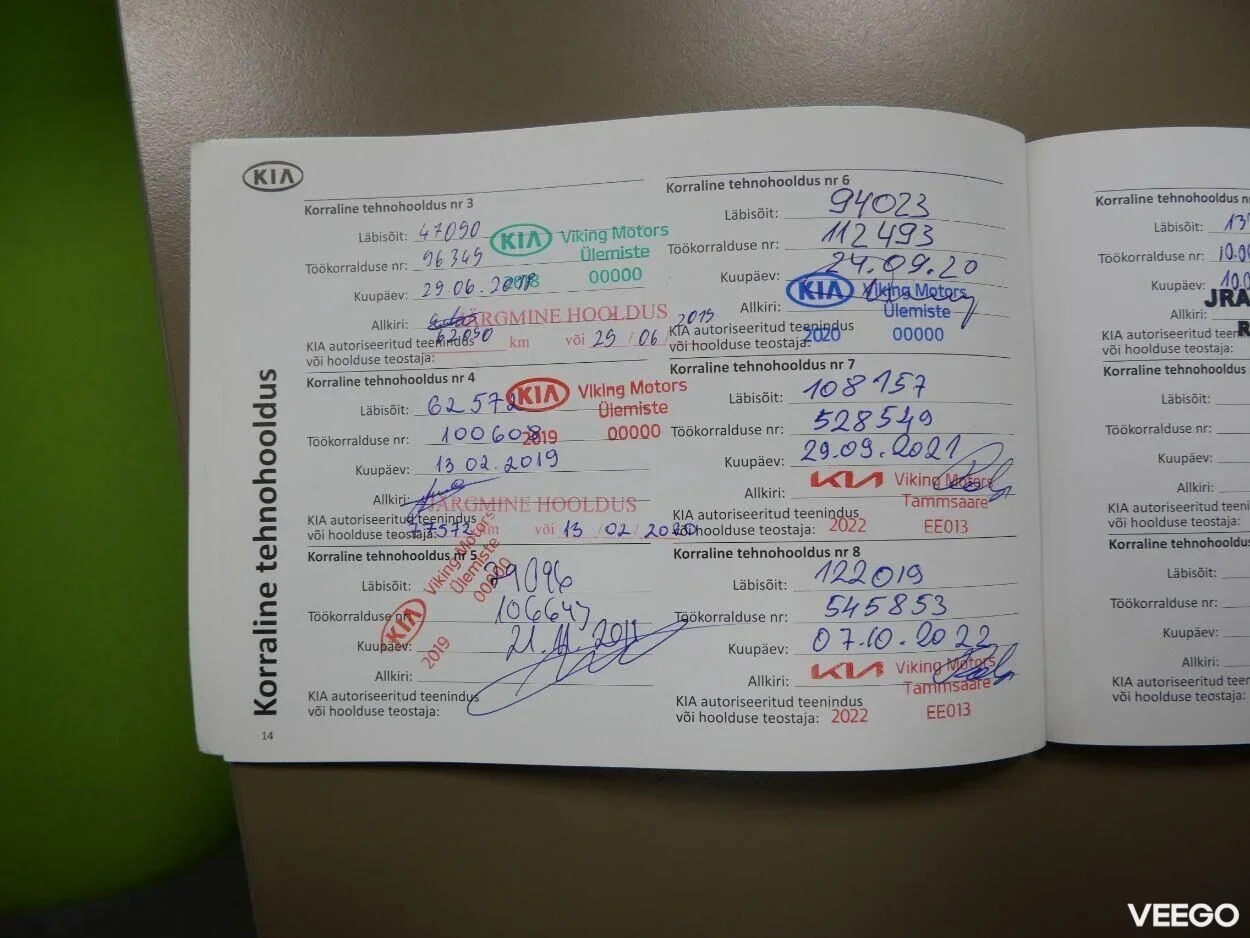 KIA
Korraline tehnohooldus
Korraline tehnohooldus nr 3
Läbisõit: 47090
Töökorralduse nr: 96349
Kuupäev: 29.06.
Allkiri:
KIA autoriseeritud teenindus
või hoolduse teostaja:
KIA Viking Motors
Ülemiste
2018 00000
JÄRGMINE HOOLDUS
62090 km või 29 / 06 / 2019
Korraline tehnohooldus nr 4
Läbisõit: 62572
Töökorralduse nr: 100608
Kuupäev: 13.02.2019
Allkiri:
KIA autoriseeritud teenindus
või hoolduse teostaja:
KIA Viking Motors
Ülemiste
2019 00000
JÄRGMINE HOOLDUS
77572 km või 13 / 02 / 2020
Korraline tehnohooldus nr 5
Läbisõit:
Töökorralduse nr: 106647
Kuupäev: 21.11.
Allkiri:
KIA autoriseeritud teenindus
või hoolduse teostaja:
KIA Viking Motors
Ülemiste
2019 00000
14
Korraline tehnohooldus nr 6
Läbisõit: 94023
Töökorralduse nr: 112493
Kuupäev: 24.09.20
Allkiri:
KIA autoriseeritud teenindus
või hoolduse teostaja:
KIA Viking Motors
Ülemiste
2020 00000
Korraline tehnohooldus nr 7
Läbisõit: 108157
Töökorralduse nr: 528549
Kuupäev: 29.09.2021
Allkiri:
KIA autoriseeritud teenindus
või hoolduse teostaja:
KIA Viking Motors
Tammsaare
2022 EE013
Korraline tehnohooldus nr 8
Läbisõit: 122019
Töökorralduse nr: 545853
Kuupäev: 07.10.2022
Allkiri:
KIA autoriseeritud teenindus
või hoolduse teostaja:
KIA Viking Motors
Tammsaare
2022 EE013
Korraline tehnohooldus
Läbisõit: 13
Töökorralduse nr: 10.0
Kuupäev: 10.0
JRA
Allkiri:
KIA autoriseeritud teenin
või hoolduse teostaja:
Korraline tehnohooldus
Läbisõit:
Töökorralduse nr:
Kuupäev:
Allkiri:
KIA autoriseeritud teenindus
või hoolduse teostaja:
Korraline tehnohooldus
Läbisõit:
Töökorralduse nr:
Kuupäev:
Allkiri:
KIA autoriseeritud teenindus
või hoolduse teostaja:
VEEGO